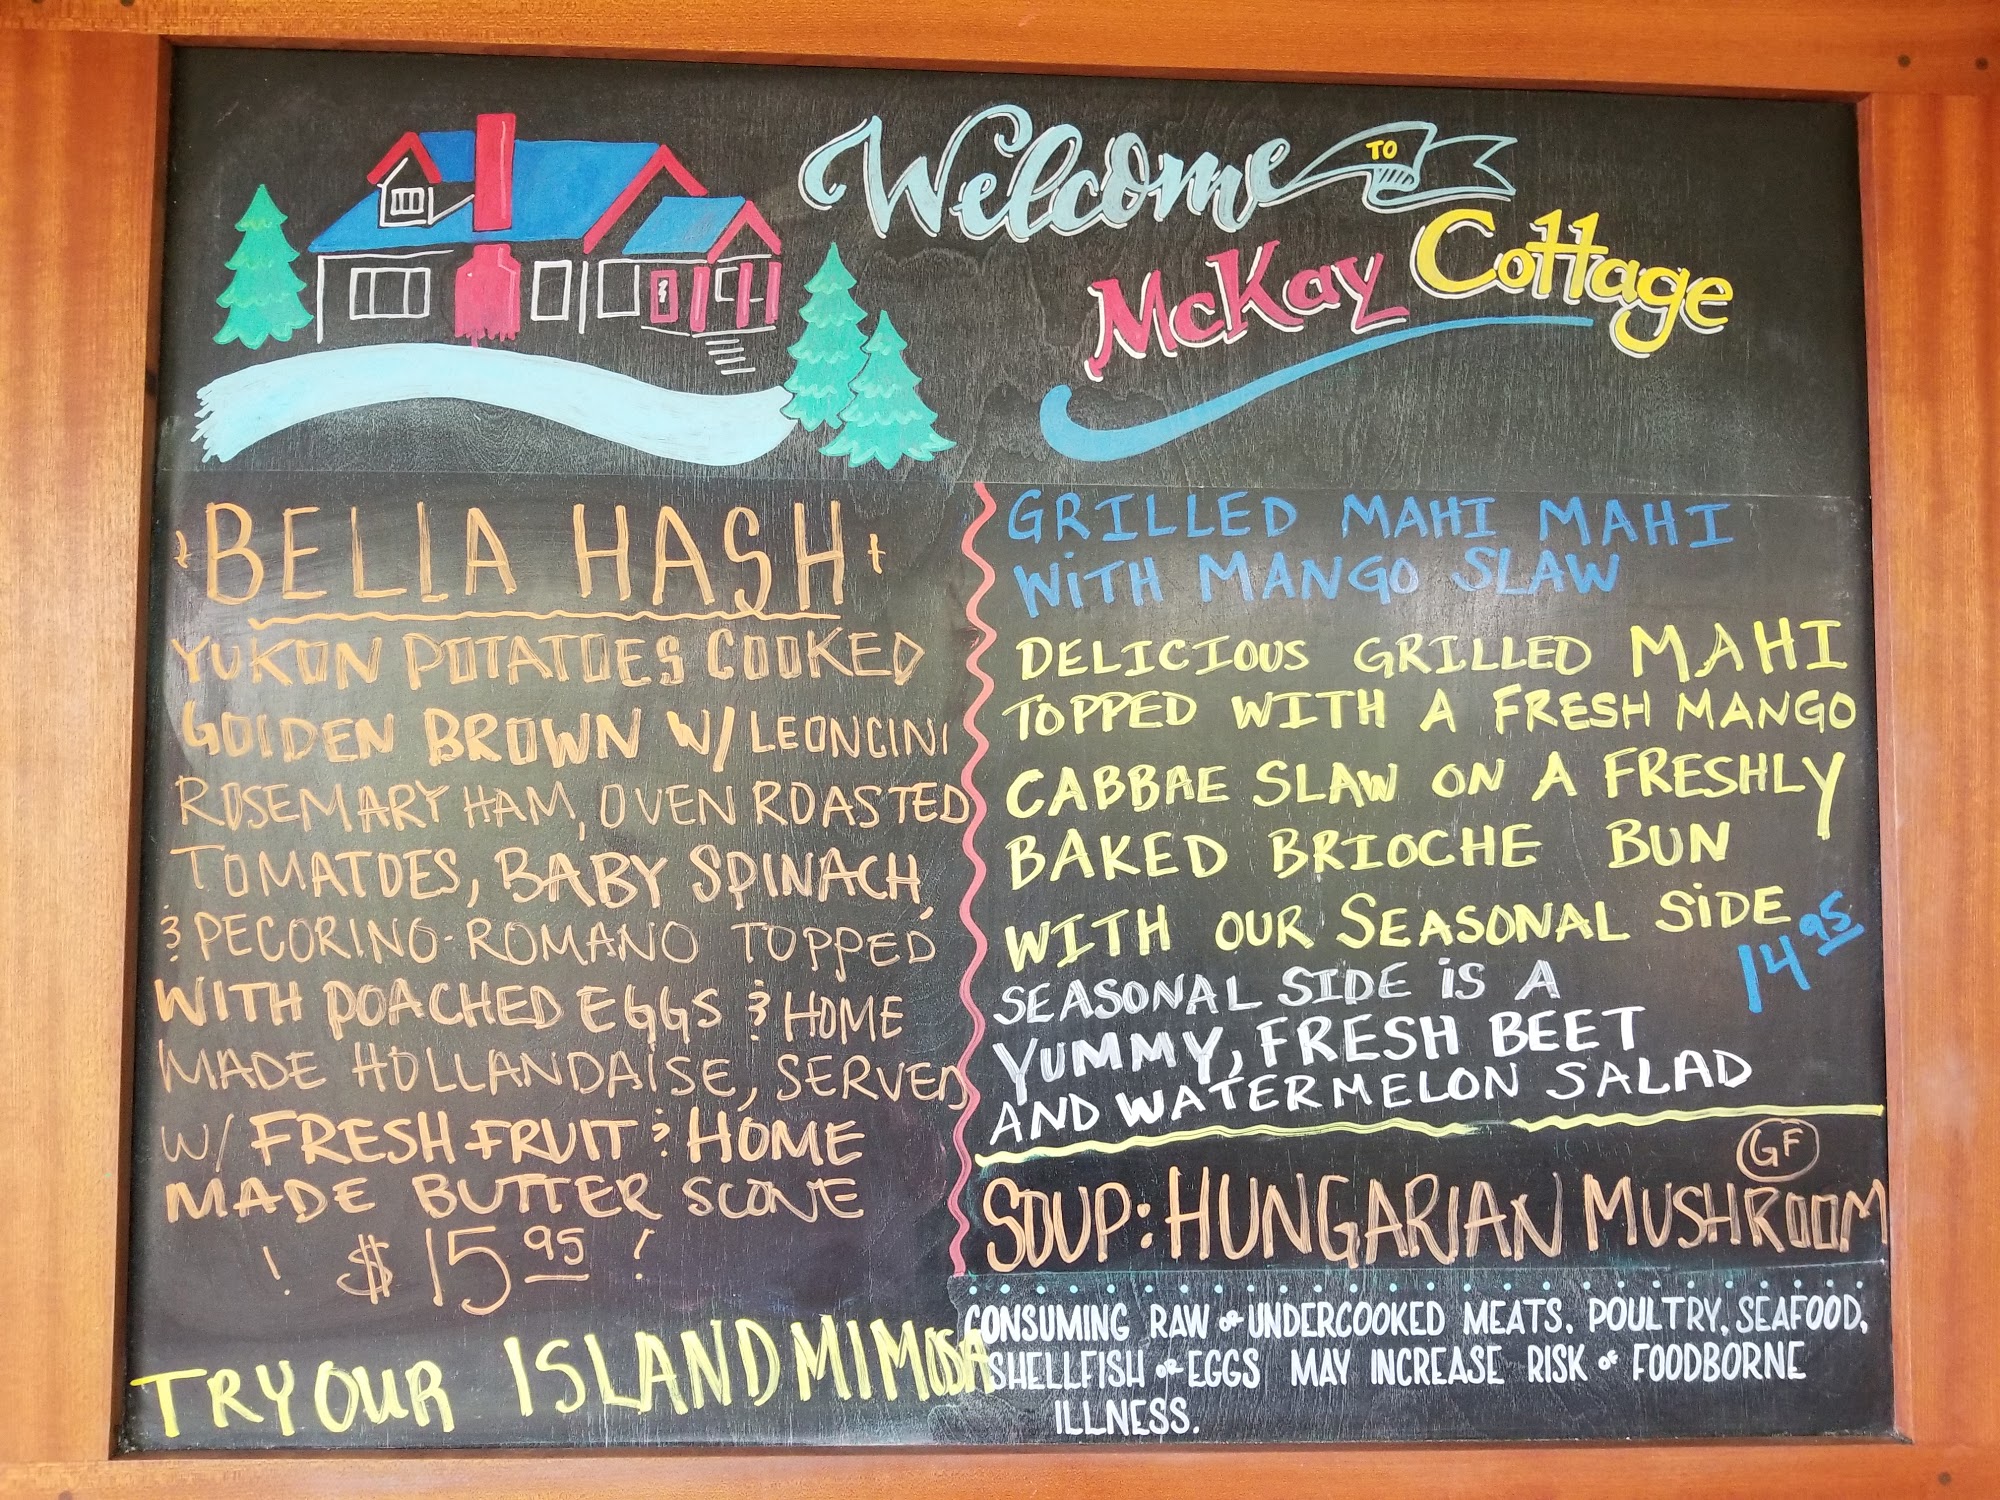 Welcome TO
McKay Cottage
BELLA HASH
YUKON POTATOES COOKED
GOLDEN BROWN W/ LEONCINI
ROSEMARY HAM, OVEN ROASTED
TOMATOES, BABY SPINACH,
& PECORINO-ROMANO TOPPED
WITH POACHED EGGS & HOME
MADE HOLLANDAISE, SERVED
W/ FRESH FRUIT & HOME
MADE BUTTER SCONE
! $15.95 !
TRY OUR ISLAND MIMOSA
GRILLED MAHI MAHI
WITH MANGO SLAW
DELICIOUS GRILLED MAHI
TOPPED WITH A FRESH MANGO
CABBAE SLAW ON A FRESHLY
BAKED BRIOCHE BUN
WITH OUR SEASONAL SIDE
14 95
SEASONAL SIDE IS A
YUMMY, FRESH BEET
AND WATERMELON SALAD
GF
SOUP: HUNGARIAN MUSHROOM
CONSUMING RAW or UNDERCOOKED MEATS, POULTRY, SEAFOOD,
SHELLFISH or EGGS MAY INCREASE RISK of FOODBORNE
ILLNESS.